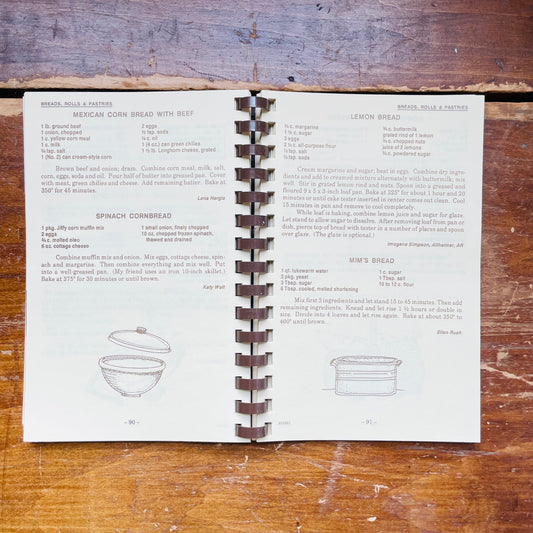 BREADS, ROLLS & PASTRIES
MEXICAN CORN BREAD WITH BEEF
1 lb. ground beef
1 onion, chopped
1 c. yellow corn meal
1 c. milk
¾ tsp. salt
1 (No. 2) can cream-style corn
2 eggs
½ tsp. soda
¼ c. oil
1 (4 oz.) can green chilies
1½ lb. Longhorn cheese, grated
Brown beef and onion; drain. Combine corn meal, milk, salt,
corn, eggs, soda and oil. Pour half of batter into greased pan. Cover
with meat, green chilies and cheese. Add remaining batter. Bake at
350° for 45 minutes.
Lena Hargis
SPINACH CORNBREAD
1 pkg. Jiffy corn muffin mix
2 eggs
¾ c. melted oleo
6 oz. cottage cheese
1 small onion, finely chopped
10 oz. chopped frozen spinach,
thawed and drained
Combine muffin mix and onion. Mix eggs, cottage cheese, spin-
ach and margarine. Then combine everything and mix well. Put
into a well-greased pan. (My friend uses an iron 10-inch skillet.)
Bake at 375° for 30 minutes or until brown.
Katy Wait
– 90 –
BREADS, ROLLS & PASTRIES
LEMON BREAD
¾ c. margarine
1½ c. sugar
3 eggs
2¼ c. all-purpose flour
¼ tsp. salt
½ tsp. soda
¾ c. buttermilk
grated rind of 1 lemon
¾ c. chopped nuts
juice of 2 lemons
¾ c. powdered sugar
Cream margarine and sugar; beat in eggs. Combine dry ingre-
dients and add to creamed mixture alternately with buttermilk; mix
well. Stir in grated lemon rind and nuts. Spoon into a greased and
floured 9 x 5 x 3-inch loaf pan. Bake at 325° for about 1 hour and 20
minutes or until cake tester inserted in center comes out clean. Cool
15 minutes in pan and remove to cool completely.
While loaf is baking, combine lemon juice and sugar for glaze.
Let stand to allow sugar to dissolve. After removing loaf from pan or
dish, pierce top of bread with tester in a number of places and spoon
over glaze. (The glaze is optional.)
Imogene Simpson, Altheimer, AR
MIM'S BREAD
1 qt. lukewarm water
3 pkg. yeast
3 Tbsp. sugar
6 Tbsp. cooled, melted shortening
1 c. sugar
1 Tbsp. salt
10 to 12 c. flour
Mix first 3 ingredients and let stand 15 to 45 minutes. Then add
remaining ingredients. Knead and let rise 1½ hours or double in
size. Divide into 4 loaves and let rise again. Bake at about 350° to
400° until brown.
Ellen Rush
– 91 –